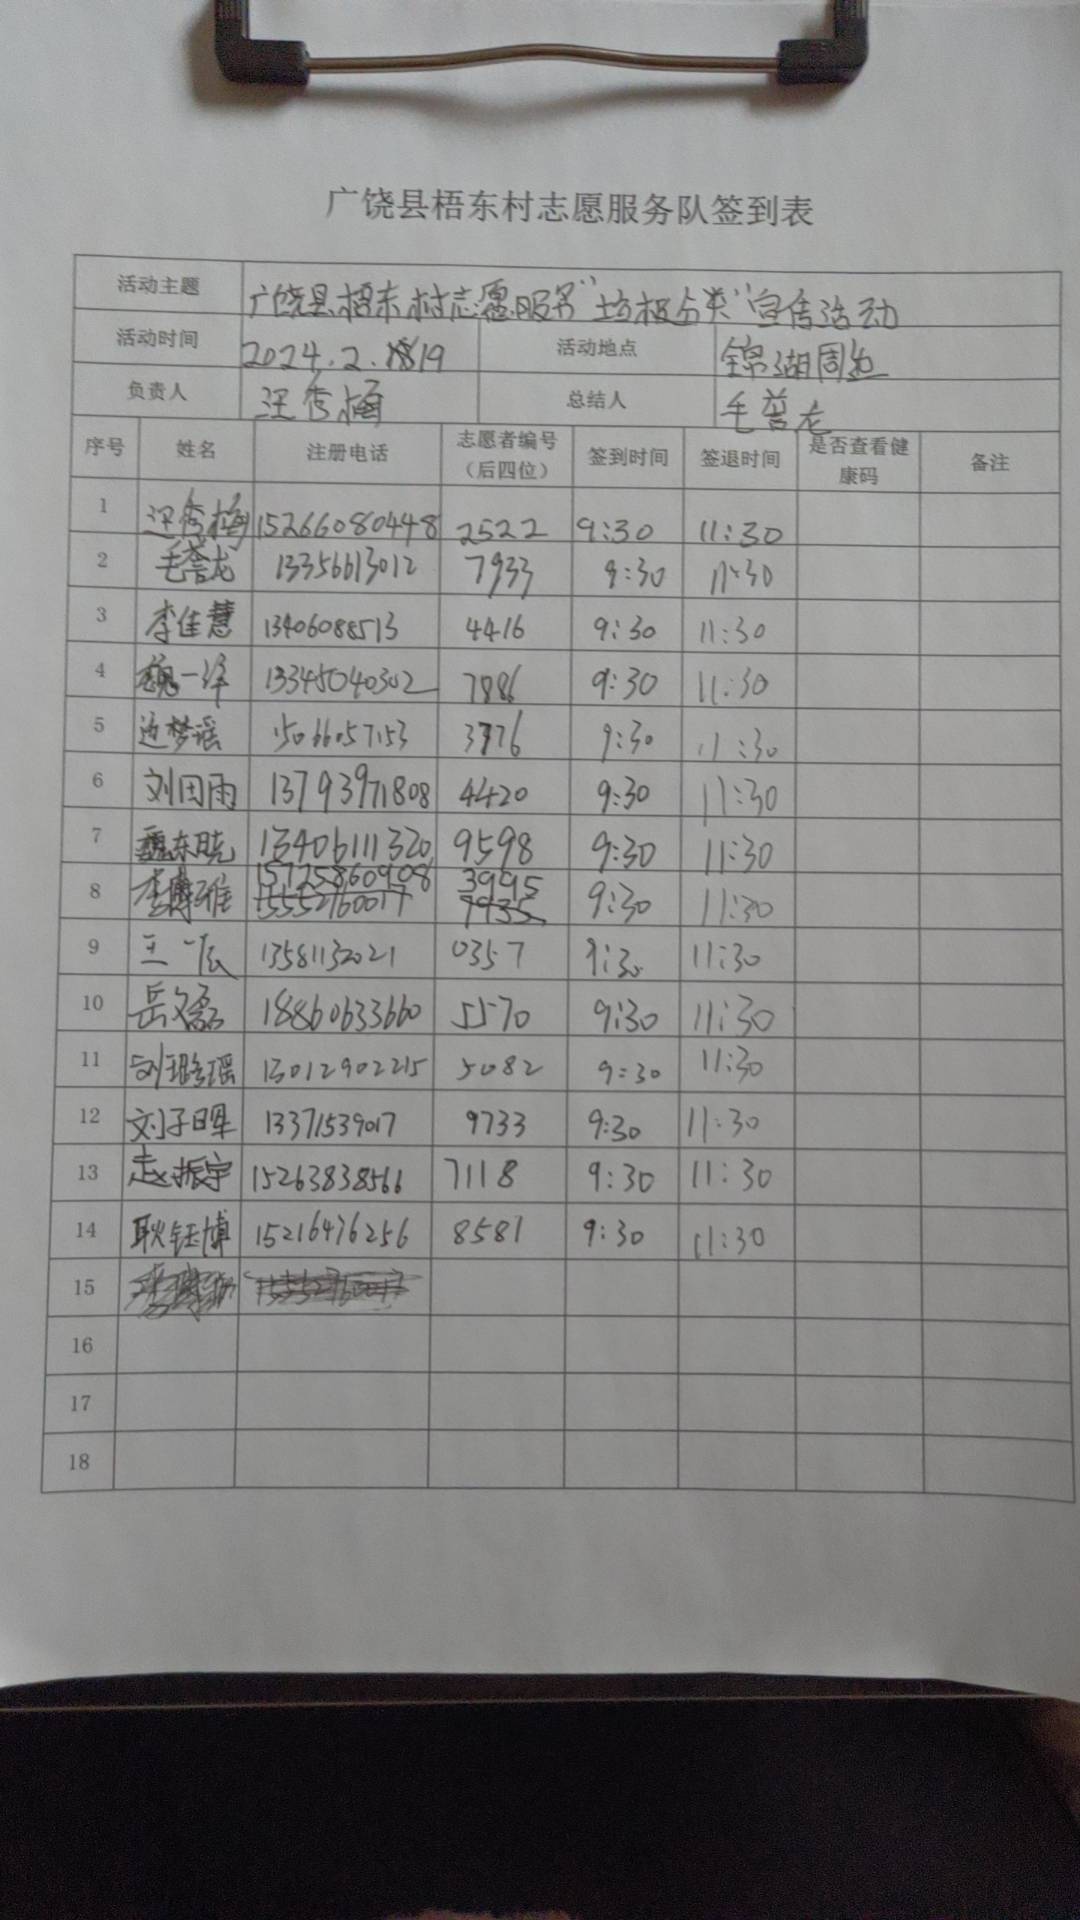 广饶县梧东村志愿服务队签到表
活动主题 广饶县梧东村志愿服务"垃圾分类"宣传活动
活动时间 2024.2.19 活动地点 锦湖周边
负责人 汪秀梅 总结人 毛誉龙
序号 姓名 注册电话 志愿者编号（后四位） 签到时间 签退时间 是否查看健康码 备注
1 汪秀梅 15266080448 2522 9:30 11:30
2 毛誉龙 13356613012 7933 9:30 11:30
3 李佳慧 13406088513 4416 9:30 11:30
4 魏一泽 13345040302 7886 9:30 11:30
5 边梦谣 15066057153 3776 9:30 11:30
6 刘田雨 13793971808 4420 9:30 11:30
7 魏东晓 13406111320 9598 9:30 11:30
8 李博雅 15725860908 3995 9:30 11:30
15552760017 7935
9 王一辰 13581132021 0357 9:30 11:30
10 岳文磊 18860633660 5570 9:30 11:30
11 刘璐瑶 13012902215 5082 9:30 11:30
12 刘子晖 13371539017 9733 9:30 11:30
13 赵振宇 15263838566 7118 9:30 11:30
14 耿钰博 15216476256 8581 9:30 11:30
15
16
17
18